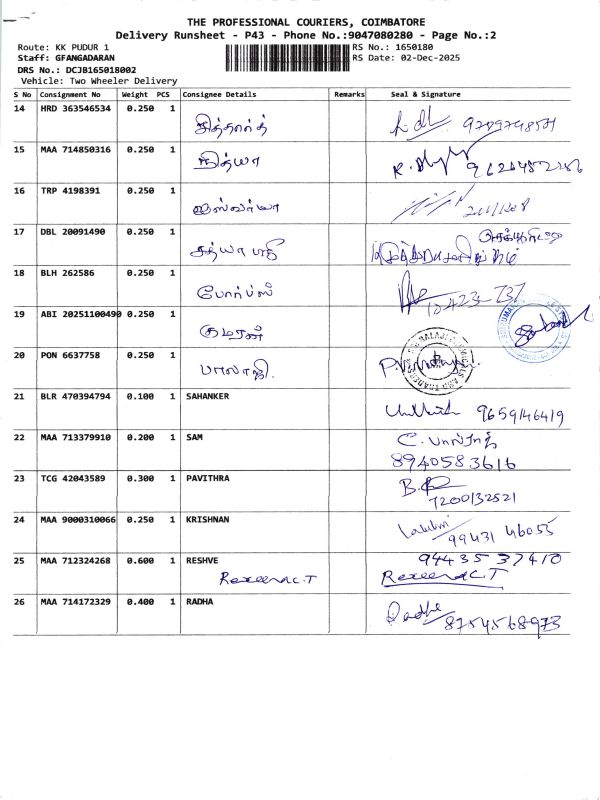 THE PROFESSIONAL COURIERS, COIMBATORE
Delivery Runsheet - P43 - Phone No.:9047080280 - Page No.:2
Route: KK PUDUR 1 RS No.: 1650180
Staff: GFANGADARAN RS Date: 02-Dec-2025
DRS No.: DCJB165018002
Vehicle: Two Wheeler Delivery
S No Consignment No Weight PCS Consignee Details Remarks Seal & Signature
14 HRD 363546534 0.250 1
சித்தார்த்
15 MAA 714850316 0.250 1
நித்யா
16 TRP 4198391 0.250 1
ஐஸ்வர்யா
17 DBL 20091490 0.250 1
சத்யா
18 BLH 262586 0.250 1
போர்ப்ஸ்
19 ABI 20251100490 0.250 1
குமரன்
20 PON 6637758 0.250 1
பாலாஜி
21 BLR 470394794 0.100 1 SAHANKER
9659146419
22 MAA 713379910 0.200 1 SAM
8940583616
23 TCG 42043589 0.300 1 PAVITHRA
7200132521
24 MAA 9000310066 0.250 1 KRISHNAN
Lakshmi 99431 46055
25 MAA 712324268 0.600 1 RESHVE 94435 37410
26 MAA 714172329 0.400 1 RADHA
Radha 8754568973